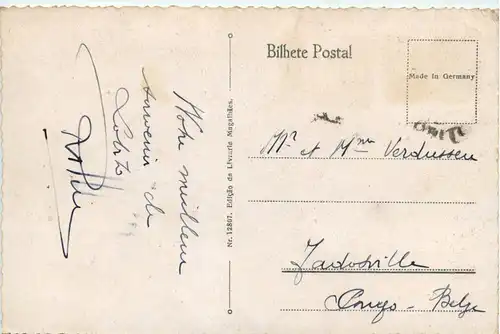 Votre meilleur
souvenir de
Lobito
Nr. 12807. Edição da Livraria Magalhães.
Bilhete Postal
Made in Germany
Mr et Mme Verdussen
Jadotville
Congo-Belge